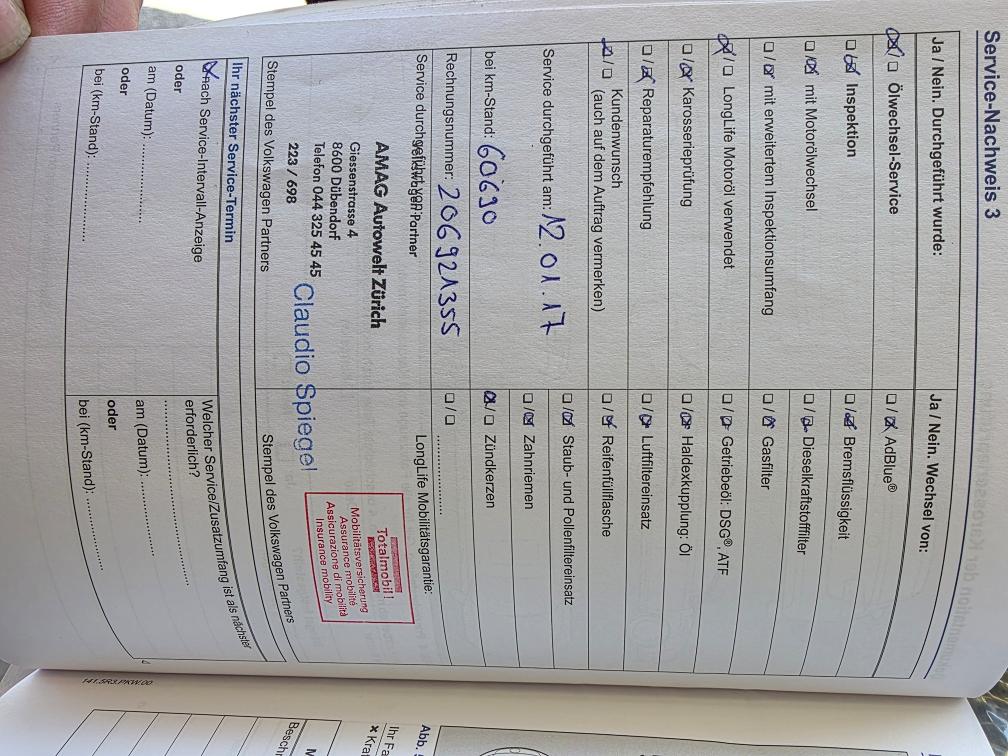 Service-Nachweis 3
Ja / Nein. Durchgeführt wurde:
☒/☐ Ölwechsel-Service
☐/☒ Inspektion
☐/☒ mit Motorölwechsel
☐/☒ mit erweitertem Inspektionsumfang
☒/☐ LongLife Motoröl verwendet
☐/☒ Karosserieprüfung
☐/☒ Reparaturempfehlung
☒/☐ Kundenwunsch
(auch auf dem Auftrag vermerken)
Service durchgeführt am: 12.01.17
bei km-Stand: 60690
Rechnungsnummer: 206921355
Service durchgeführt von:
Volkswagen Partner
AMAG Autowelt Zürich
Giessenstrasse 4
8600 Dübendorf
Telefon 044 325 45 45
223 / 698
Claudio Spiegel
Stempel des Volkswagen Partners
Ja / Nein. Wechsel von:
☐/☒ AdBlue®
☐/☒ Bremsflüssigkeit
☐/☒ Dieselkraftstofffilter
☐/☒ Gasfilter
☐/☒ Getriebeöl: DSG®, ATF
☐/☒ Haldexkupplung: Öl
☐/☒ Luftfiltereinsatz
☐/☒ Reifenfüllflasche
☐/☒ Staub- und Pollenfiltereinsatz
☐/☒ Zahnriemen
☒/☐ Zündkerzen
☐/☐ ..................
LongLife Mobilitätsgarantie:
Totalmobil!
Mobilitätsversicherung
Assurance mobilité
Assicurazione di mobilità
Insurance mobility
Stempel des Volkswagen Partners
Ihr nächster Service-Termin
☒ nach Service-Intervall-Anzeige
oder
am (Datum): ..................
oder
bei (km-Stand): ..................
Welcher Service/Zusatzumfang ist als nächster
erforderlich?
..................
am (Datum): ..................
oder
bei (km-Stand): ..................
141.5R3.PKW.00
Abb.
Ihr Fa
× Kra
Besch